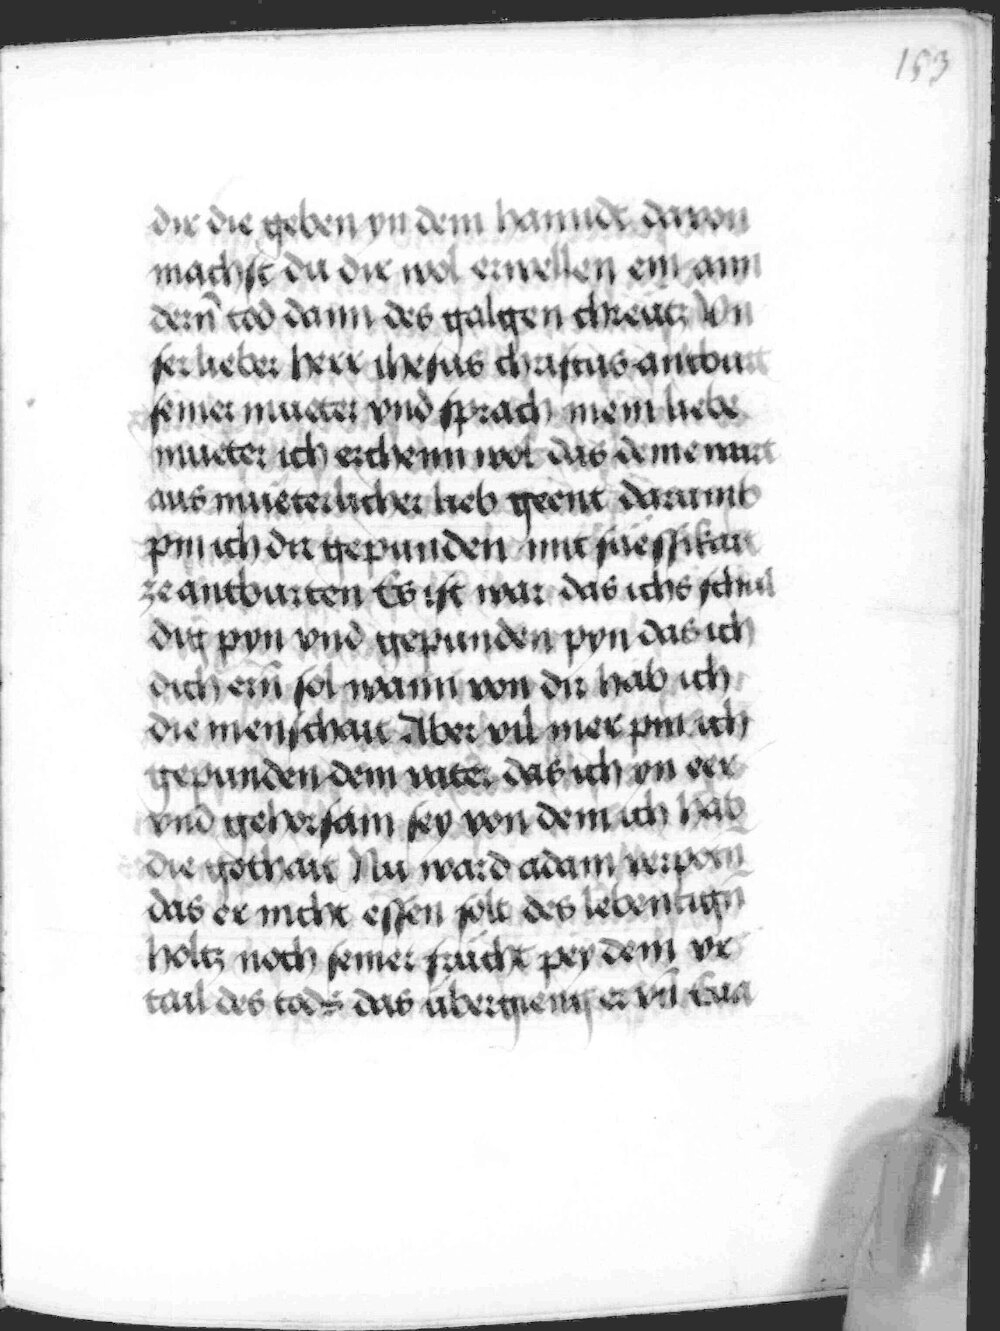 153
dir die geben yn dem hannde dauon
machst du dir wol erwellen ein ann
dern̄ tod dann des galgen chreutz Vn
ser lieber herr ihesus christus antburt
seiner mueter vnd sprach mein liebe
mueter ich erchenn wol das deine wart
aus mueterlicher lieb geent darumb
pin ich dir gepunden mit süessikait
ze antburten Es ist war das ichs schul
dig pyn vnd gepunden pyn das ich
dich ern̄ sol wann von dir hab ich
die menschait Aber vil mer pin ich
gepunden dem vater das ich yn eer
vnd gehorsam sey von dem ich hab
die gothait Nu ward adam verpotn̄
das er nicht essen solt des lebentign̄
holtz noch seiner frücht pey dem vr
tail des tods das übergieng er vn̄